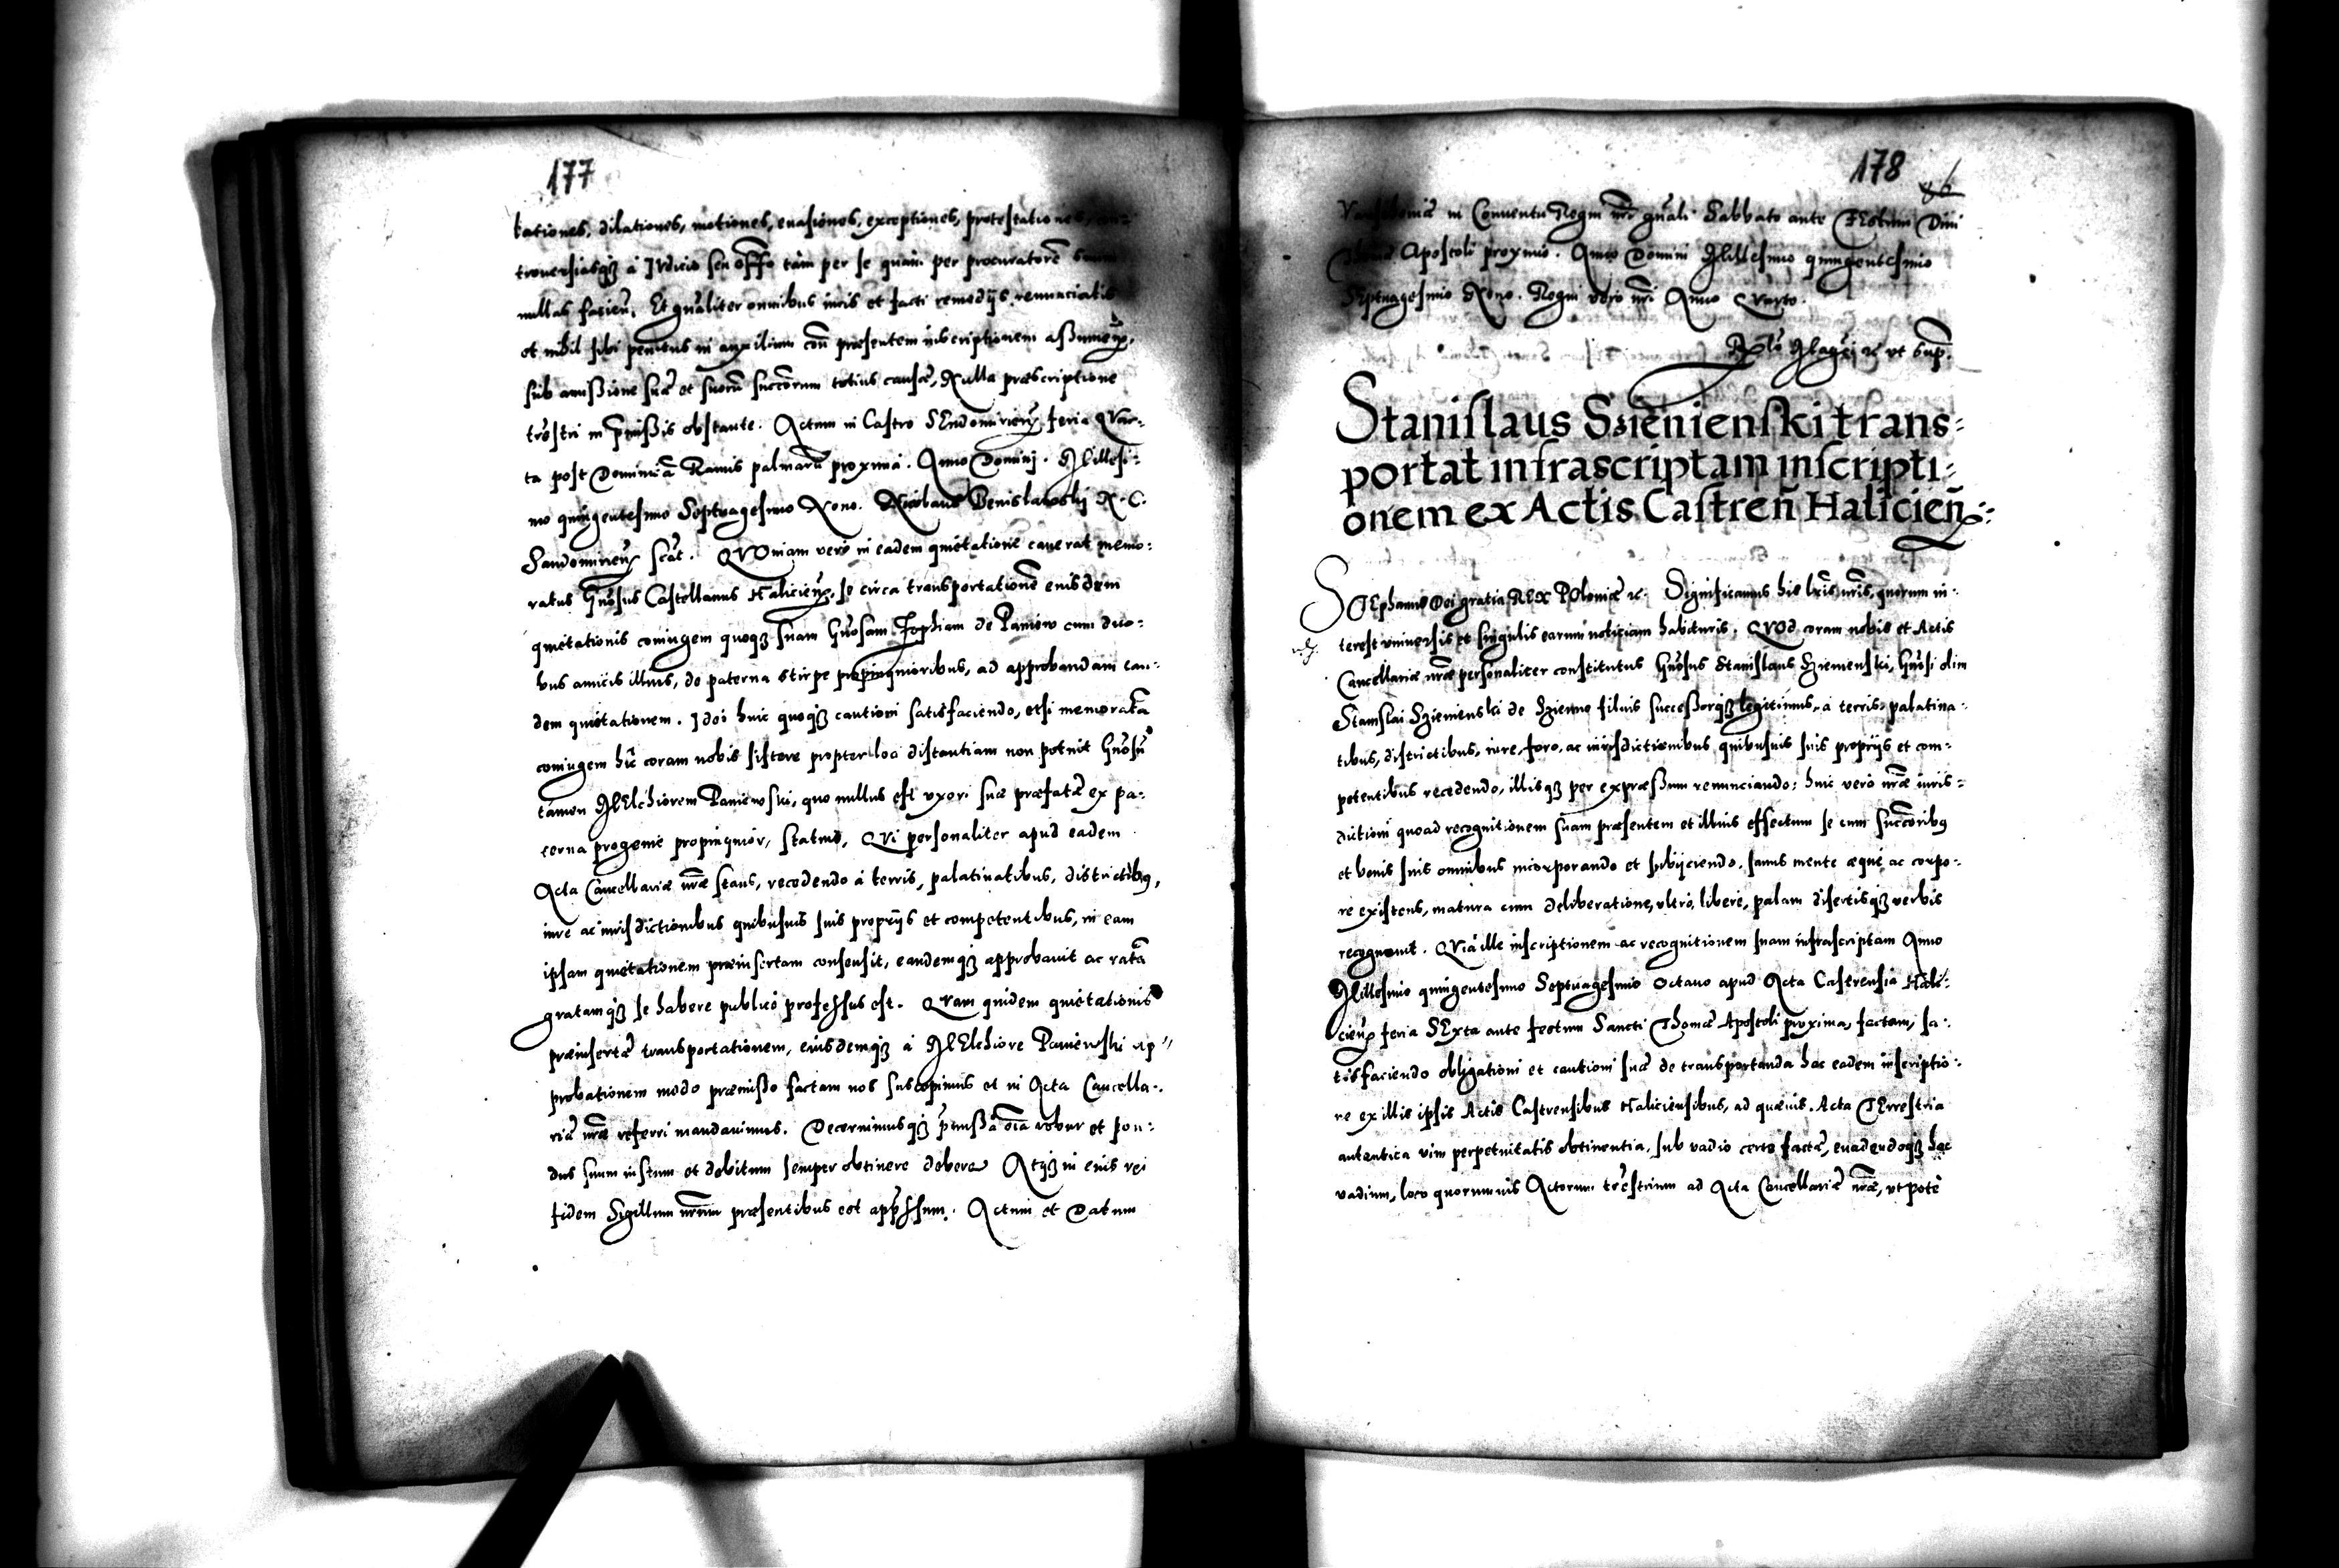 177
tationes, dilationes, motiones, euasiones, exceptiones, protestationes, con-
trouersiasq3 à Iudicio seu offo tàm per se quàm per procuratorē suum
nullas facien. Et gnāliter omnibus iuris et facti remedijs renunciatis
et nihil sibi penitus in auxilium con̄ præsentem inscriptionem assumen,
sub amissione suæ et suoru succorum totius causæ, Nulla præscriptione
trestri in pmissis obstante. Actum in Castro SEndomirien feria QVar-
ta post Dominica Ramis palmaru proxima. Anno Domini. Millesi-
mo quingentesimo Septuagesimo Nono. Nicolaus Benislawskj N. C.
Sandomirien scat. QVOniam verò in eadem quietatione cauerat memo:
ratus Gnosus Castellanus Halicien, se circa transportationē eiusdem
quietationis coniugem quoq3 suam Gnosam Zophiam de Paniow cum duo:
bus amicis illius, de paterna stirpe propinquioribus, ad approbandam ean:
dem quietationem. Idoi huic quoq3 cautioni satisfaciendo, etsi memoratā
coniugem hic coram nobis sistere propter loci distantiam non potuit Gnosu
tamen MElchiorem Paniewski, quo nullus est vxori suæ præfatæ ex pa:
terna progenie propinquior, statuit, QVi personaliter apud eadem
Acta Cancellariæ nræ stans, recedendo à terris, palatinatibus, districtibus,
iure ac iurisdictionibus quibusuis suis proprijs et competentibus, in eam
ipsam quietationem præinsertam consensit, eandemq3 approbauit ac ratā
gratamq3 se habere publicè professus est. QVam quidem quietationis
præinsertæ transportationem, eiusdemq3 à MElchiore Paniewski ap"
probationem modo præmisso factam nos suscepimus et in Acta Cancella:
riæ nræ referri mandauimus. Decernimusq3 pmissa oīa robur et pon:
dus suum iustum et debitum semper obtinere debere. Atq3 in eius rei
fidem Sigillum nrum præsentibus est appssum. Actum et Datum
178
Varschouiæ in Conuentu Regni nri gnali Sabbato ante FEstum Diui
Thomæ Apostoli proximo. Anno Domini Millesimo quingentesimo
Septuagesimo Nono. Regni vero nri Anno QVarto.
vt sup.
Stanislaus Szienienski trans:
portat infrascriptam inscripti:
onem ex Actis Castren̄ Halicien̄:
STEphanus Dei gratia REX POloniæ &c. Significamus his lris nris, quorum in:
terest vniuersis et singulis earum noticiam habituris, QVOd coram nobis et Actis
Cancellariæ nræ personaliter constitutus Gnosus Stanislaus Szienienski, Gnosi olim
Stanislai Szienienski de Szienno filius successorq3 legitimus, à terris, palatina:
tibus, districtibus, iure, foro, ac iurisdictionibus quibusuis suis proprijs et com:
petentibus recedendo, illisq3 per expræssum renunciando: huic verò nræ iuris:
dictioni quoad recognitionem suam præsentem et illius effectum se cum succoribus
et bonis suis omnibus incorporando et subijciendo, sanus mente æquè ac corpo:
re existens, matura cum deliberatione, vltrò, liberè, palam disertisq3 verbis
recognouit. QVia ille inscriptionem ac recognitionem suam infrascriptam Anno
Millesimo quingentesimo Septuagesimo Octauo apud Acta Castrensia Hali:
cien feria SExta ante festum Sancti Thomæ Apostoli proxima, factam, sa:
tisfaciendo obligationi et cautioni suæ de transportanda hac eadem inscriptio:
ne ex illis ipsis Actis Castrensibus Haliciensibus, ad quæuis Acta TErrestria
autentica vim perpetuitatis obtinentia, sub vadio certo factæ, euadendoq3 hoc
vadium, loco quorumuis Actorum trestrium ad Acta Cancellariæ nræ, vt potè